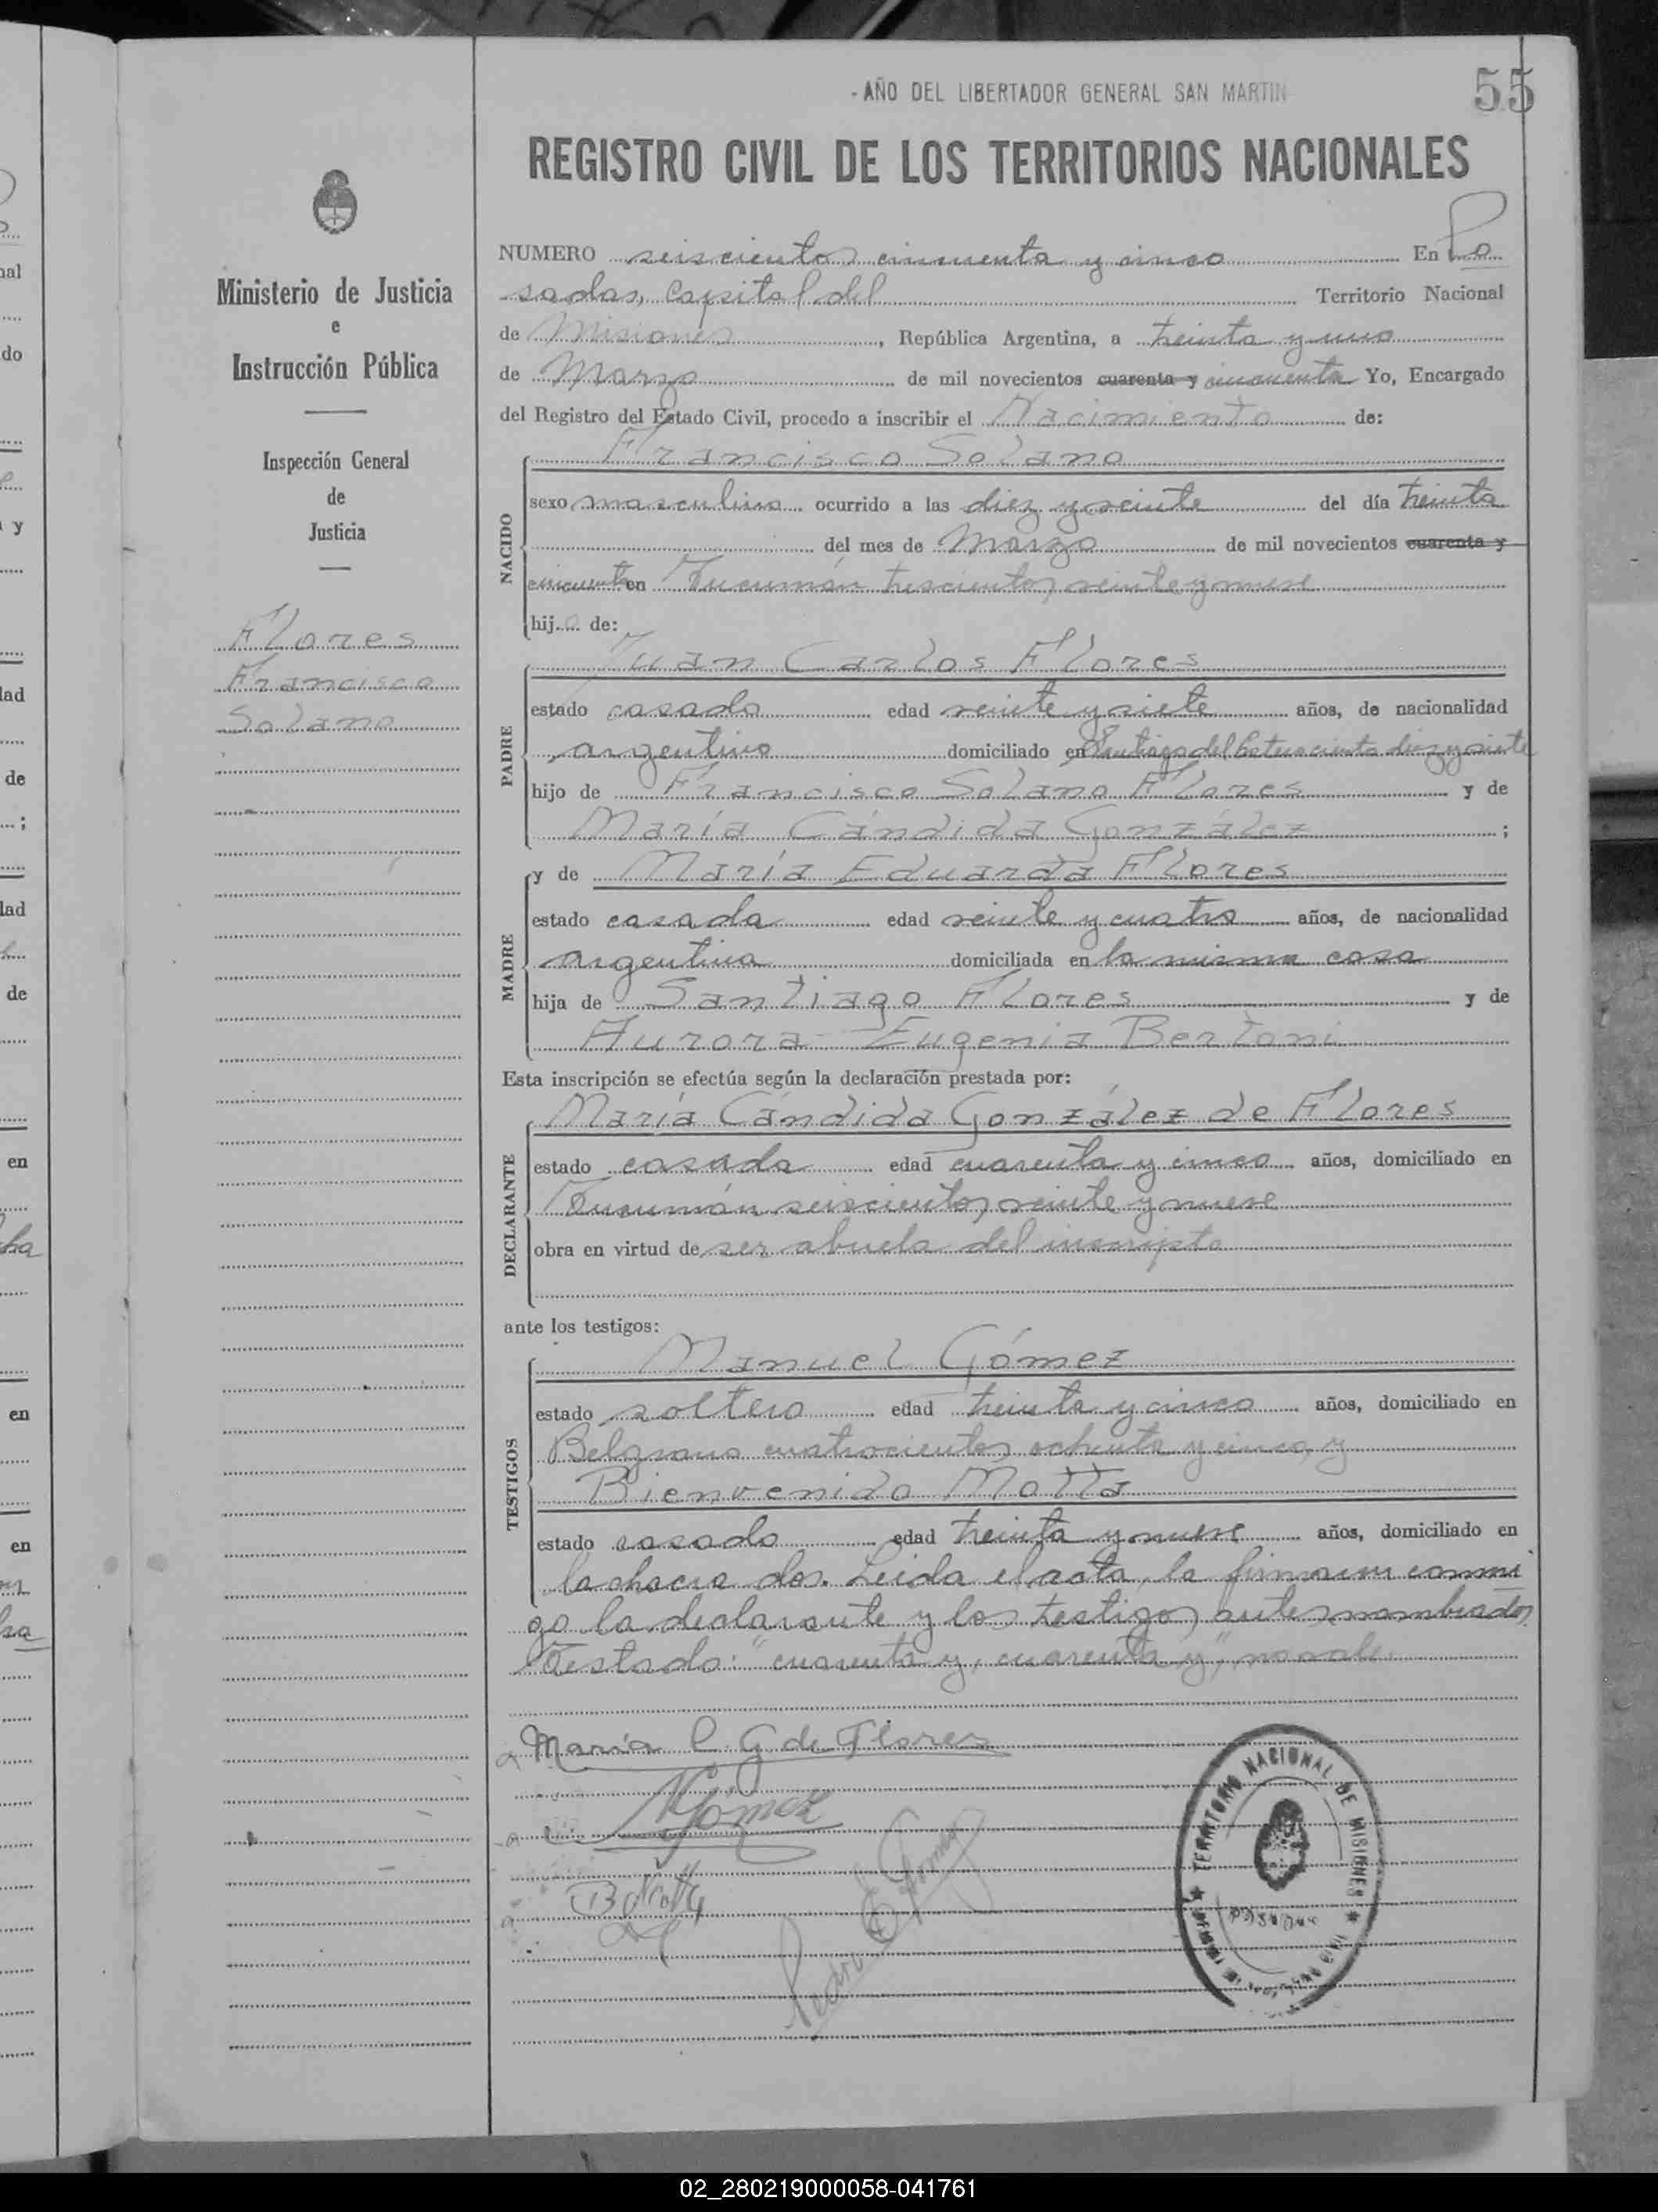 - AÑO DEL LIBERTADOR GENERAL SAN MARTIN
55
REGISTRO CIVIL DE LOS TERRITORIOS NACIONALES
Ministerio de Justicia
e
Instrucción Pública
Inspección General
de
Justicia
Flores
Francisco
Solano
NUMERO seiscientos cincuenta y cinco En Po
sadas, Capital del Territorio Nacional
de Misiones, República Argentina, a treinta y uno
de Marzo de mil novecientos cuarenta y cincuenta Yo, Encargado
del Registro del Estado Civil, procedo a inscribir el Nacimiento de:
NACIDO
Francisco Solano
sexo masculino ocurrido a las diez y veinte del día treinta
del mes de Marzo de mil novecientos cuarenta y
cincuenta en Tucumán trescientos veinte y nueve
hijo de:
PADRE
Juan Carlos Flores
estado casado edad veinte y siete años, de nacionalidad
argentino domiciliado en Santiago del diez y siete
hijo de Francisco Solano Flores y de
María Cándida González ;
MADRE
y de María Eduarda Flores
estado casada edad veinte y cuatro años, de nacionalidad
argentina domiciliada en la misma casa
hija de Santiago Flores y de
Aurora Eugenia Bertoni
Esta inscripción se efectúa según la declaración prestada por:
DECLARANTE
María Cándida González de Flores
estado casada edad cuarenta y cinco años, domiciliado en
Tucumán seiscientos veinte y nueve
obra en virtud de ser abuela del inscripto
ante los testigos:
TESTIGOS
Manuel Gómez
estado soltero edad treinta y cinco años, domiciliado en
Belgrano cuatrocientos ochenta y cinco, y
Bienvenido Motta
estado casado edad treinta y nueve años, domiciliado en
la chacra dos. Leida el acta, la firmaron conmi
go la declarante y los testigos antes nombrados
Testado: "cuarenta y, cuarenta y", no vale.
María C. G de Flores
MGómez
BMotta
Pedro E
TERRITORIO NACIONAL DE MISIONES
POSADAS
02_280219000058-041761